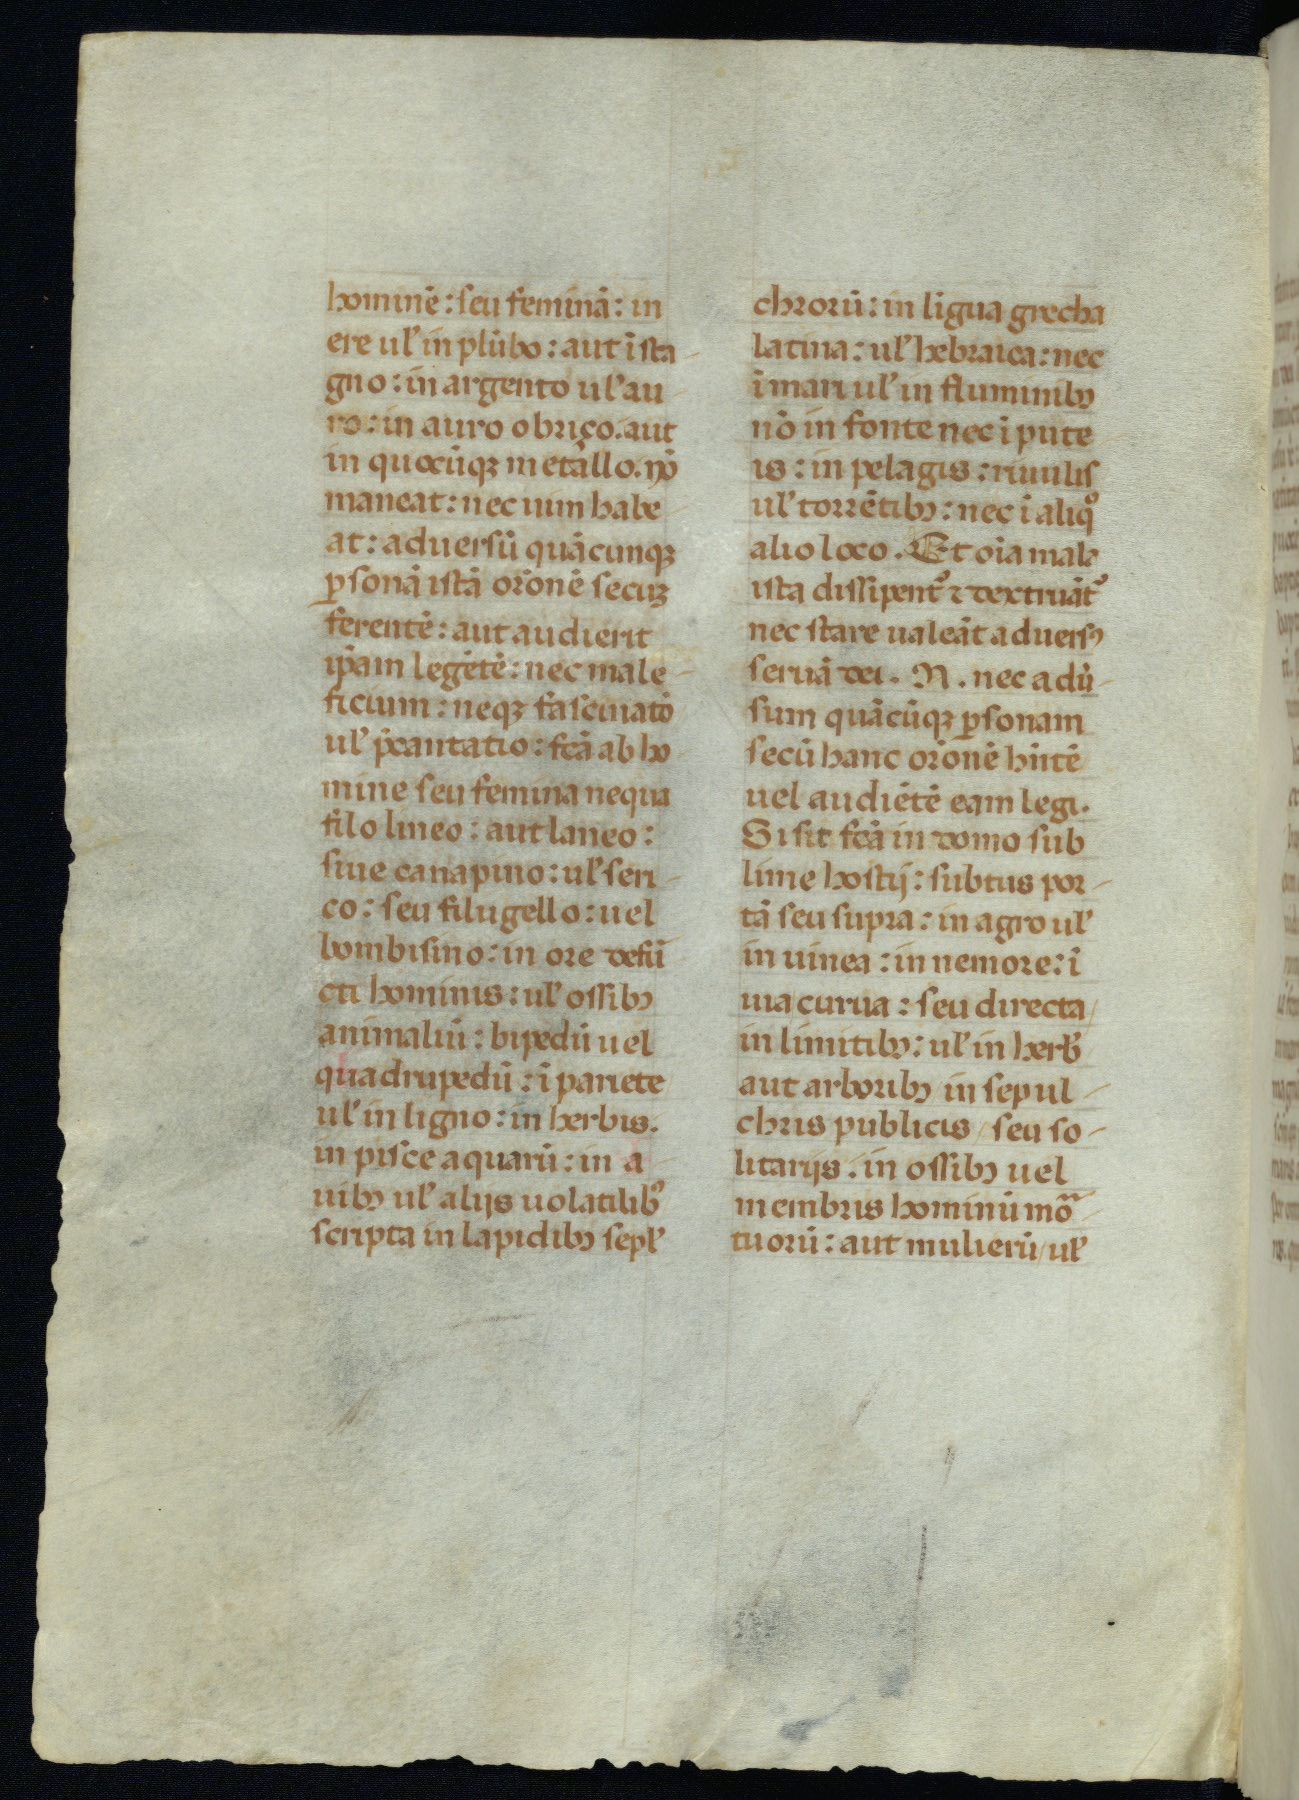 hominē : seu feminā : in
ere ul' in plūbo : aut ī sta-
gno : in argento ul' au-
ro : in auro obriço. aut
in quocūqꝫ metallo. nō
maneat : nec uim habe-
at : aduersū quācunqꝫ
ꝑsonā istā or̄onē secuꝫ
ferentē : aut audierit
ip̄am legētē : nec male-
ficium : neqꝫ fascinatō
ul' p̄cantatio : fcā ab ho-
mine seu femina nequa
filo lineo : aut laneo :
siue canapino : ul' seri-
co : seu filugello : uel
bombisino : in ore defū
cti hominis : ul' ossibꝫ
animaliū : bipedū uel
quadrupedū : ī pariete
ul' in ligno : in herbis.
in pisce aquarū : in a-
uibꝫ ul' alijs uolatilibꝰ
scripta in lapidibꝫ sepl'
chrorū : in līgua grecha
latina : ul' hebraica : nec
ī mari ul' in fluminibꝫ
nō in fonte nec ī pute
is : in pelagis : riuulis
ul' torrētibꝫ : nec ī aliqͦ
alio loco. Et oīa mala
ista dissipent᷑ ⁊ dextruāt᷑
nec stare ualeāt aduersꝫ
seruā dei. N. nec adū-
sum quācūqꝫ ꝑsonam
secū hanc or̄onē hn̄tē
uel audiētē eam legi.
Si sit fcā in domo sub
lime hostij : subtus por-
tā seu supra : in agro ul'
in uinea : in nemore : ī
uia curua : seu directa/
in limitibꝫ : ul' in herb'
aut arboribꝫ in sepul-
chris publicis / seu so-
litarijs : in ossibꝫ uel
membris hominū mo᷑-
tuorū : aut mulierū / ul'